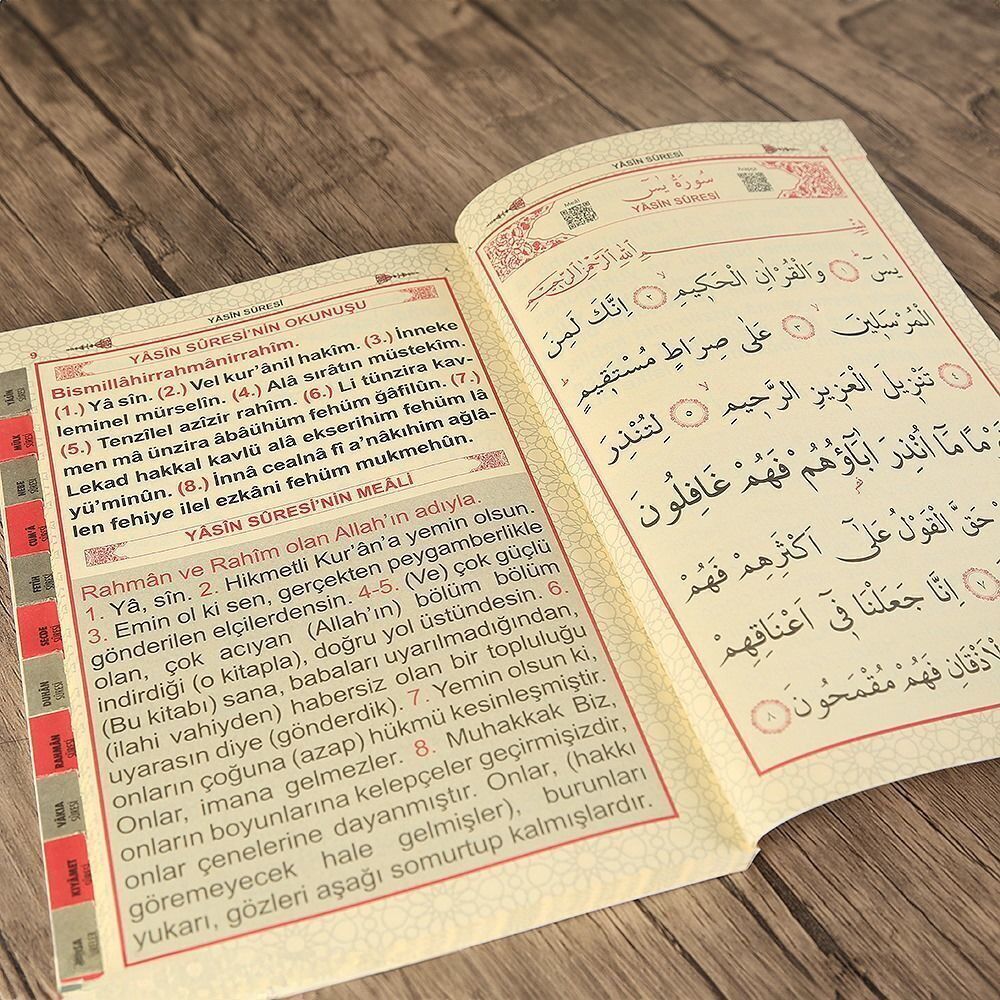 YÂSÎN SÛRESİ
9
YÂSÎN SÛRESİ'NİN OKUNUŞU
Bismillâhirrahmânirrahîm.
(1.) Yâ sîn. (2.) Vel kur'ânil hakîm. (3.) İnneke
leminel mürselîn. (4.) Alâ sırâtın müstekîm.
(5.) Tenzîlel azîzir rahîm. (6.) Li tünzira kav-
men mâ ünzira âbâühüm fehüm ğâfilûn. (7.)
Lekad hakkal kavlü alâ ekserihim fehüm lâ
yü'minûn. (8.) İnnâ cealnâ fî a'nâkıhim ağlâ-
len fehiye ilel ezkâni fehüm mukmehûn.
YÂSÎN SÛRESİ'NİN MEÂLİ
Rahmân ve Rahîm olan Allah'ın adıyla.
1. Yâ, sîn. 2. Hikmetli Kur'ân'a yemin olsun.
3. Emin ol ki sen, gerçekten peygamberlikle
gönderilen elçilerdensin. 4-5. (Ve) çok güçlü
olan, çok acıyan (Allah'ın) bölüm bölüm
indirdiği (o kitapla), doğru yol üstündesin. 6.
(Bu kitabı) sana, babaları uyarılmadığından,
(ilahi vahiyden) habersiz olan bir topluluğu
uyarasın diye (gönderdik). 7. Yemin olsun ki,
onların çoğuna (azap) hükmü kesinleşmiştir.
Onlar, imana gelmezler. 8. Muhakkak Biz,
onların boyunlarına kelepçeler geçirmişizdir,
onlar çenelerine dayanmıştır. Onlar, (hakkı
göremeyecek hale gelmişler), burunları
yukarı, gözleri aşağı somurtup kalmışlardır.
YÂSİN SÛRESİ
MÜLK SÛRESİ
NEBE SÛRESİ
CUM'A SÛRESİ
FETİH SÛRESİ
SECDE SÛRESİ
DUHÂN SÛRESİ
RAHMÂN SÛRESİ
VÂKIA SÛRESİ
KIYÂMET SÛRESİ
KISA SÛRELER
YÂSÎN SÛRESİ
سُورَةُ يٰسٓ
YÂSÎN SÛRESİ
Meâli
Arapça
بِسْمِ اللّٰهِ الرَّحْمٰنِ الرَّحِيمِ
يٰسٓ ﴿١﴾ وَالْقُرْاٰنِ الْحَكِيمِ ﴿٢﴾ اِنَّكَ لَمِنَ
الْمُرْسَلِينَ ﴿٣﴾ عَلٰى صِرَاطٍ مُسْتَقِيمٍ
﴿٤﴾ تَنْزِيلَ الْعَزِيزِ الرَّحِيمِ ﴿٥﴾ لِتُنْذِرَ
مَا اُنْذِرَ اٰبَٓاؤُهُمْ فَهُمْ غَافِلُونَ
حَقَّ الْقَوْلُ عَلٰٓى اَكْثَرِهِمْ فَهُمْ
﴿٧﴾ اِنَّا جَعَلْنَا فِٓي اَعْنَاقِهِمْ
الْاَذْقَانِ فَهُمْ مُقْمَحُونَ ﴿٨﴾